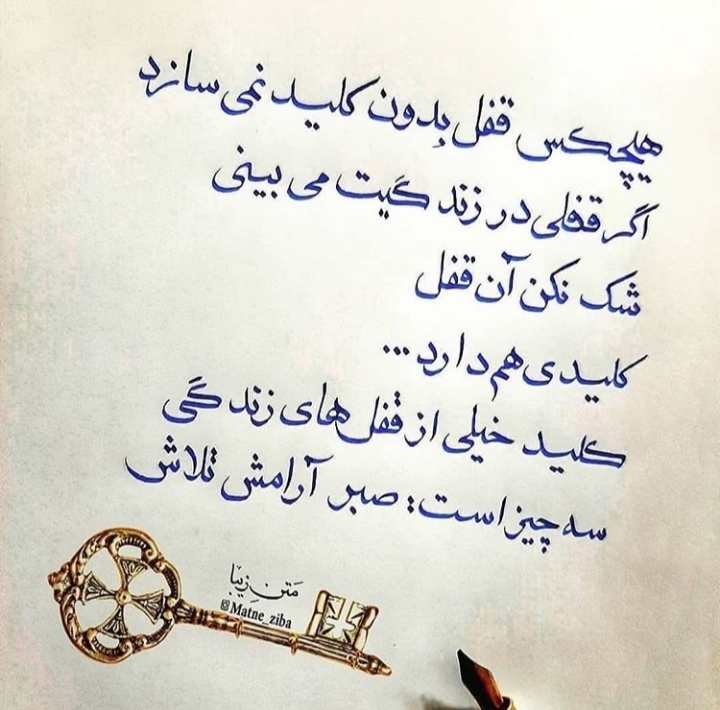 هیچکس قفل بدون کلید نمی سازد
اگر قفلی در زندگیت می بینی
شک نکن آن قفل
کلیدی هم دارد...
کلید خیلی از قفل های زندگی
سه چیز است: صبر آرامش تلاش
مَتن زیبا
@Matne_ziba